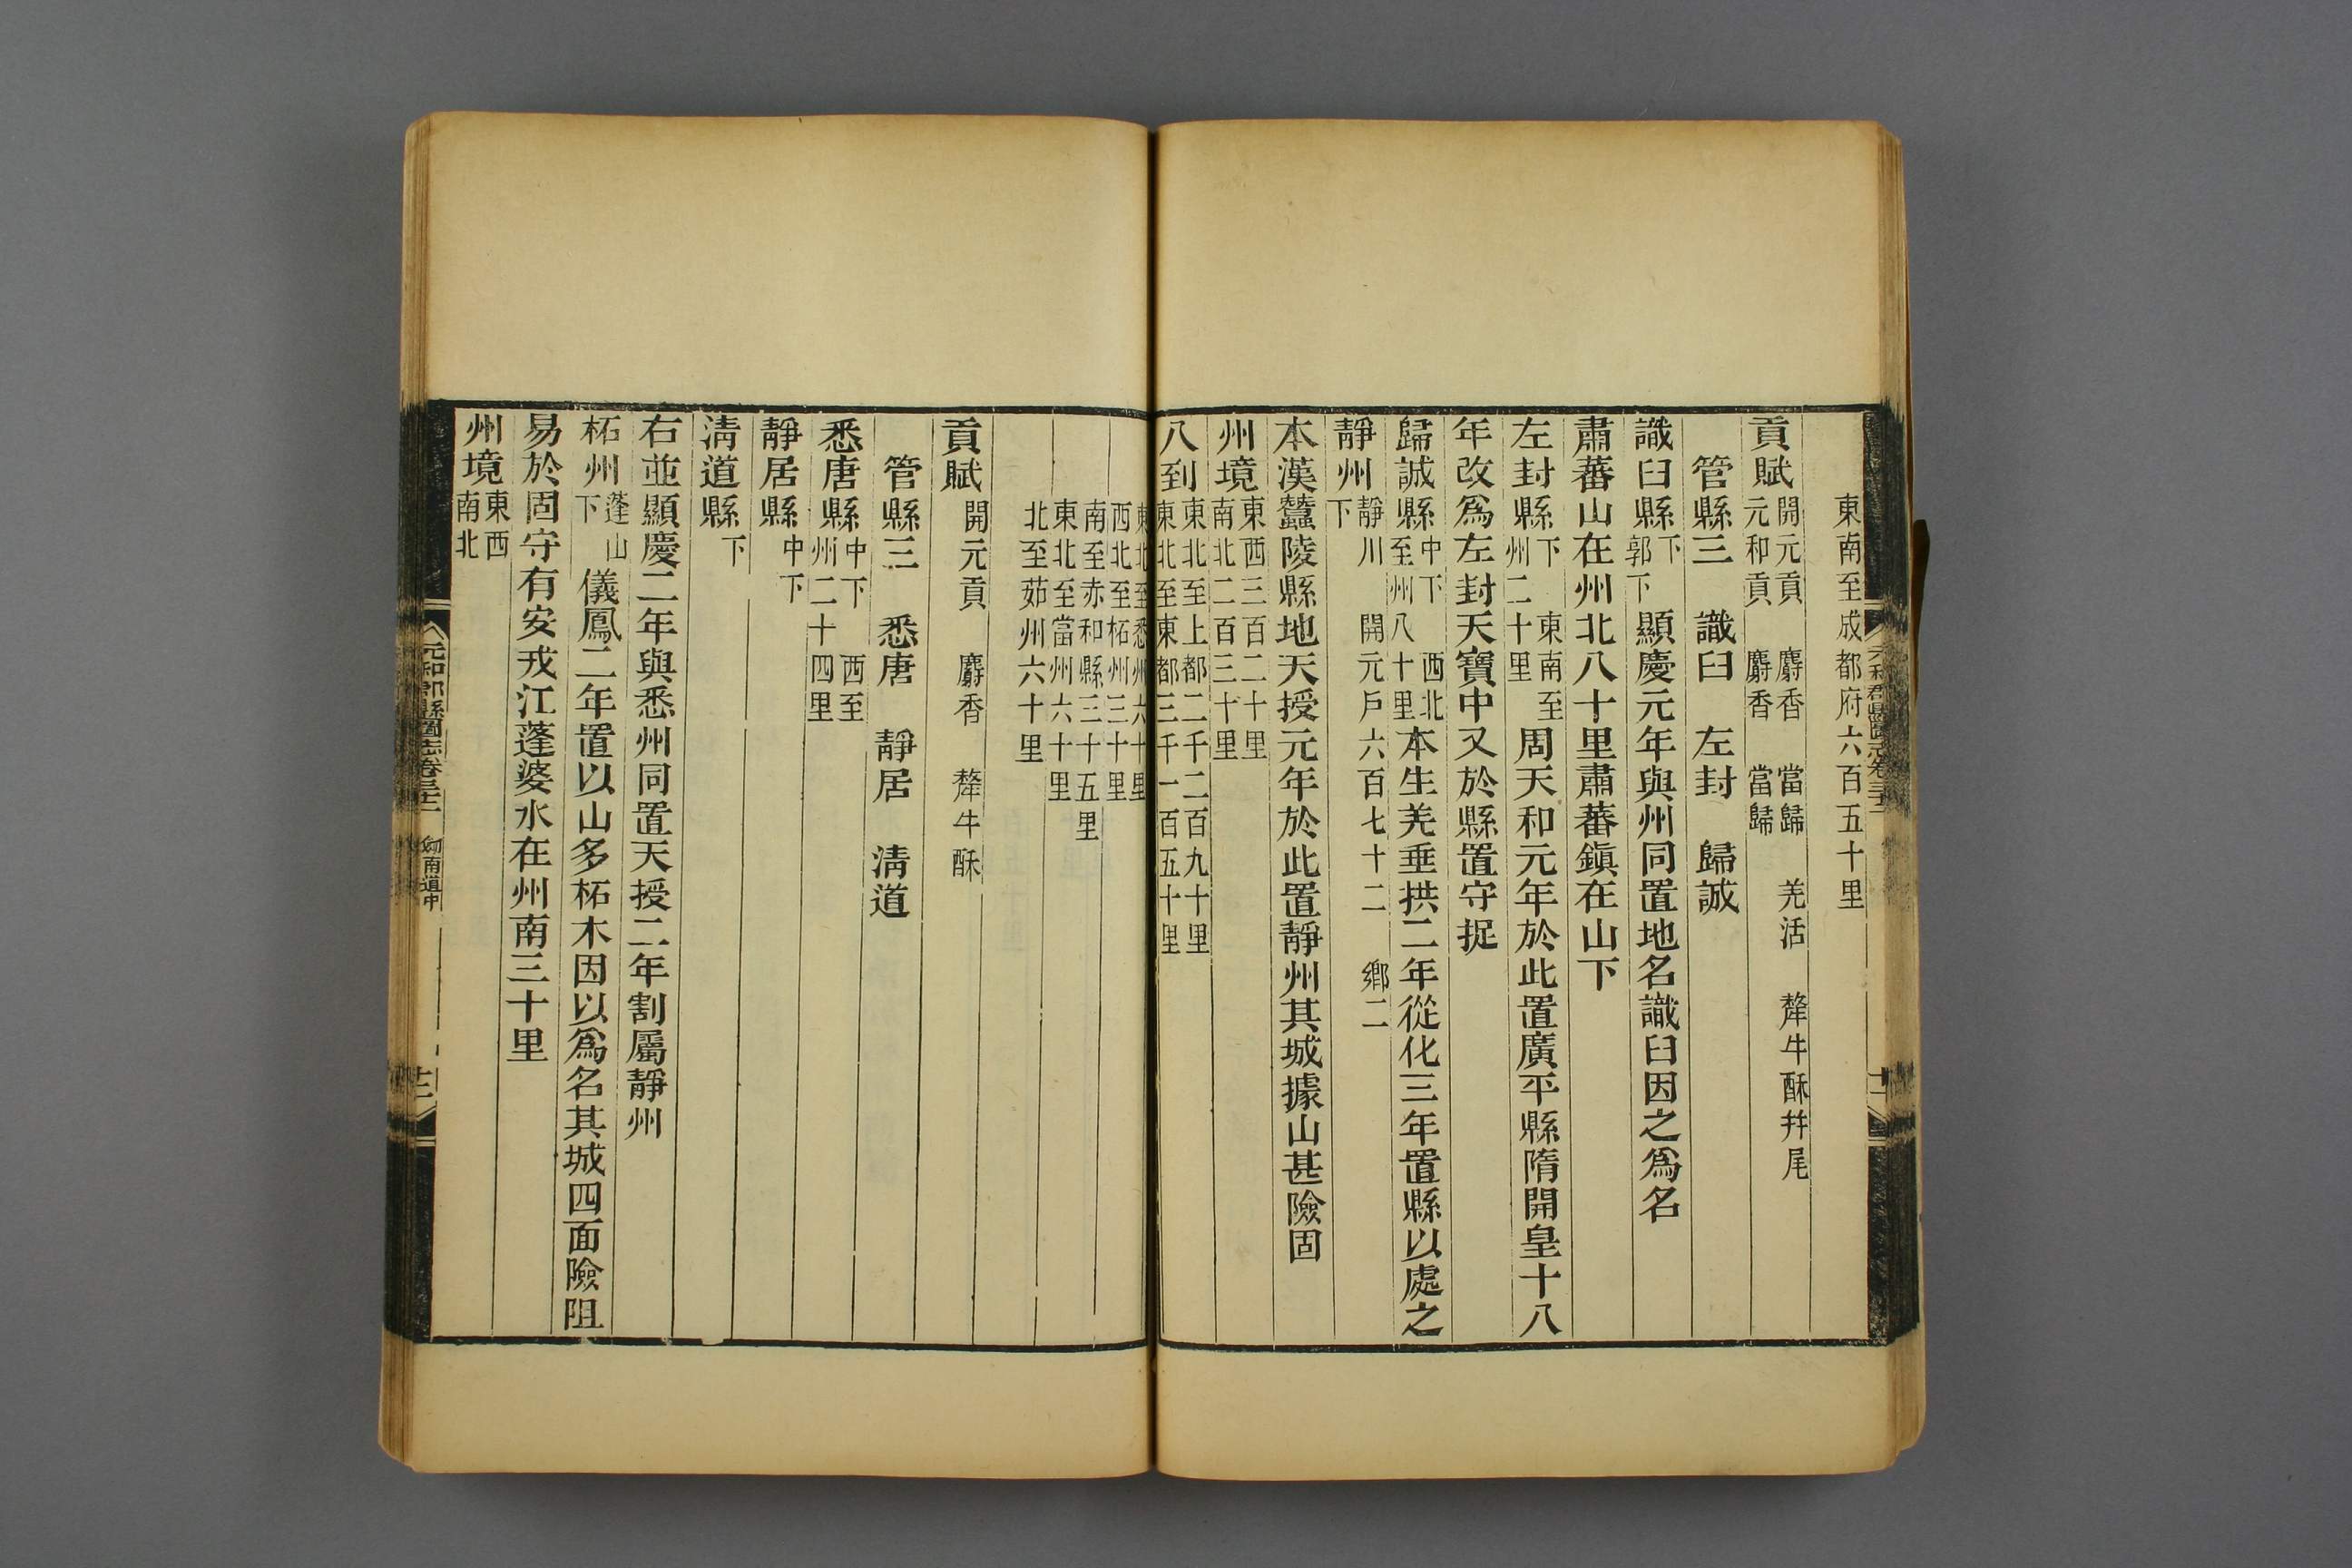 東南至成都府六百五十里
貢賦開元貢 麝香 當歸 羌活 犛牛酥并尾
元和貢 麝香 當歸
管縣三 識臼 左封 歸誠
識臼縣下郭下 顯慶元年與州同置地名識臼因之爲名
肅蕃山在州北八十里肅蕃鎭在山下
左封縣下 東南至州二十里 周天和元年於此置廣平縣隋開皇十八
年改爲左封天寶中又於縣置守捉
歸誠縣中下 西北至州八十里本生羌垂拱二年從化三年置縣以處之
靜州靜川下 開元戶六百七十二 鄉二
本漢蠶陵縣地天授元年於此置靜州其城據山甚險固
州境東西三百二十里南北二百三十里
八到東北至上都二千二百九十里東北至東都三千一百五十里
東北至悉州六十里西北至柘州三十里
南至赤和縣三十五里東北至當州六十里
北至茹州六十里
貢賦開元貢 麝香 犛牛酥
管縣三 悉唐 靜居 清道
悉唐縣中下 西至州二十四里
靜居縣中下
清道縣下
右並顯慶二年與悉州同置天授二年割屬靜州
柘州蓬山下 儀鳳二年置以山多柘木因以爲名其城四面險阻
易於固守有安戎江蓬婆水在州南三十里
州境東西南北
元和郡縣圖志卷三十二 劍南道中